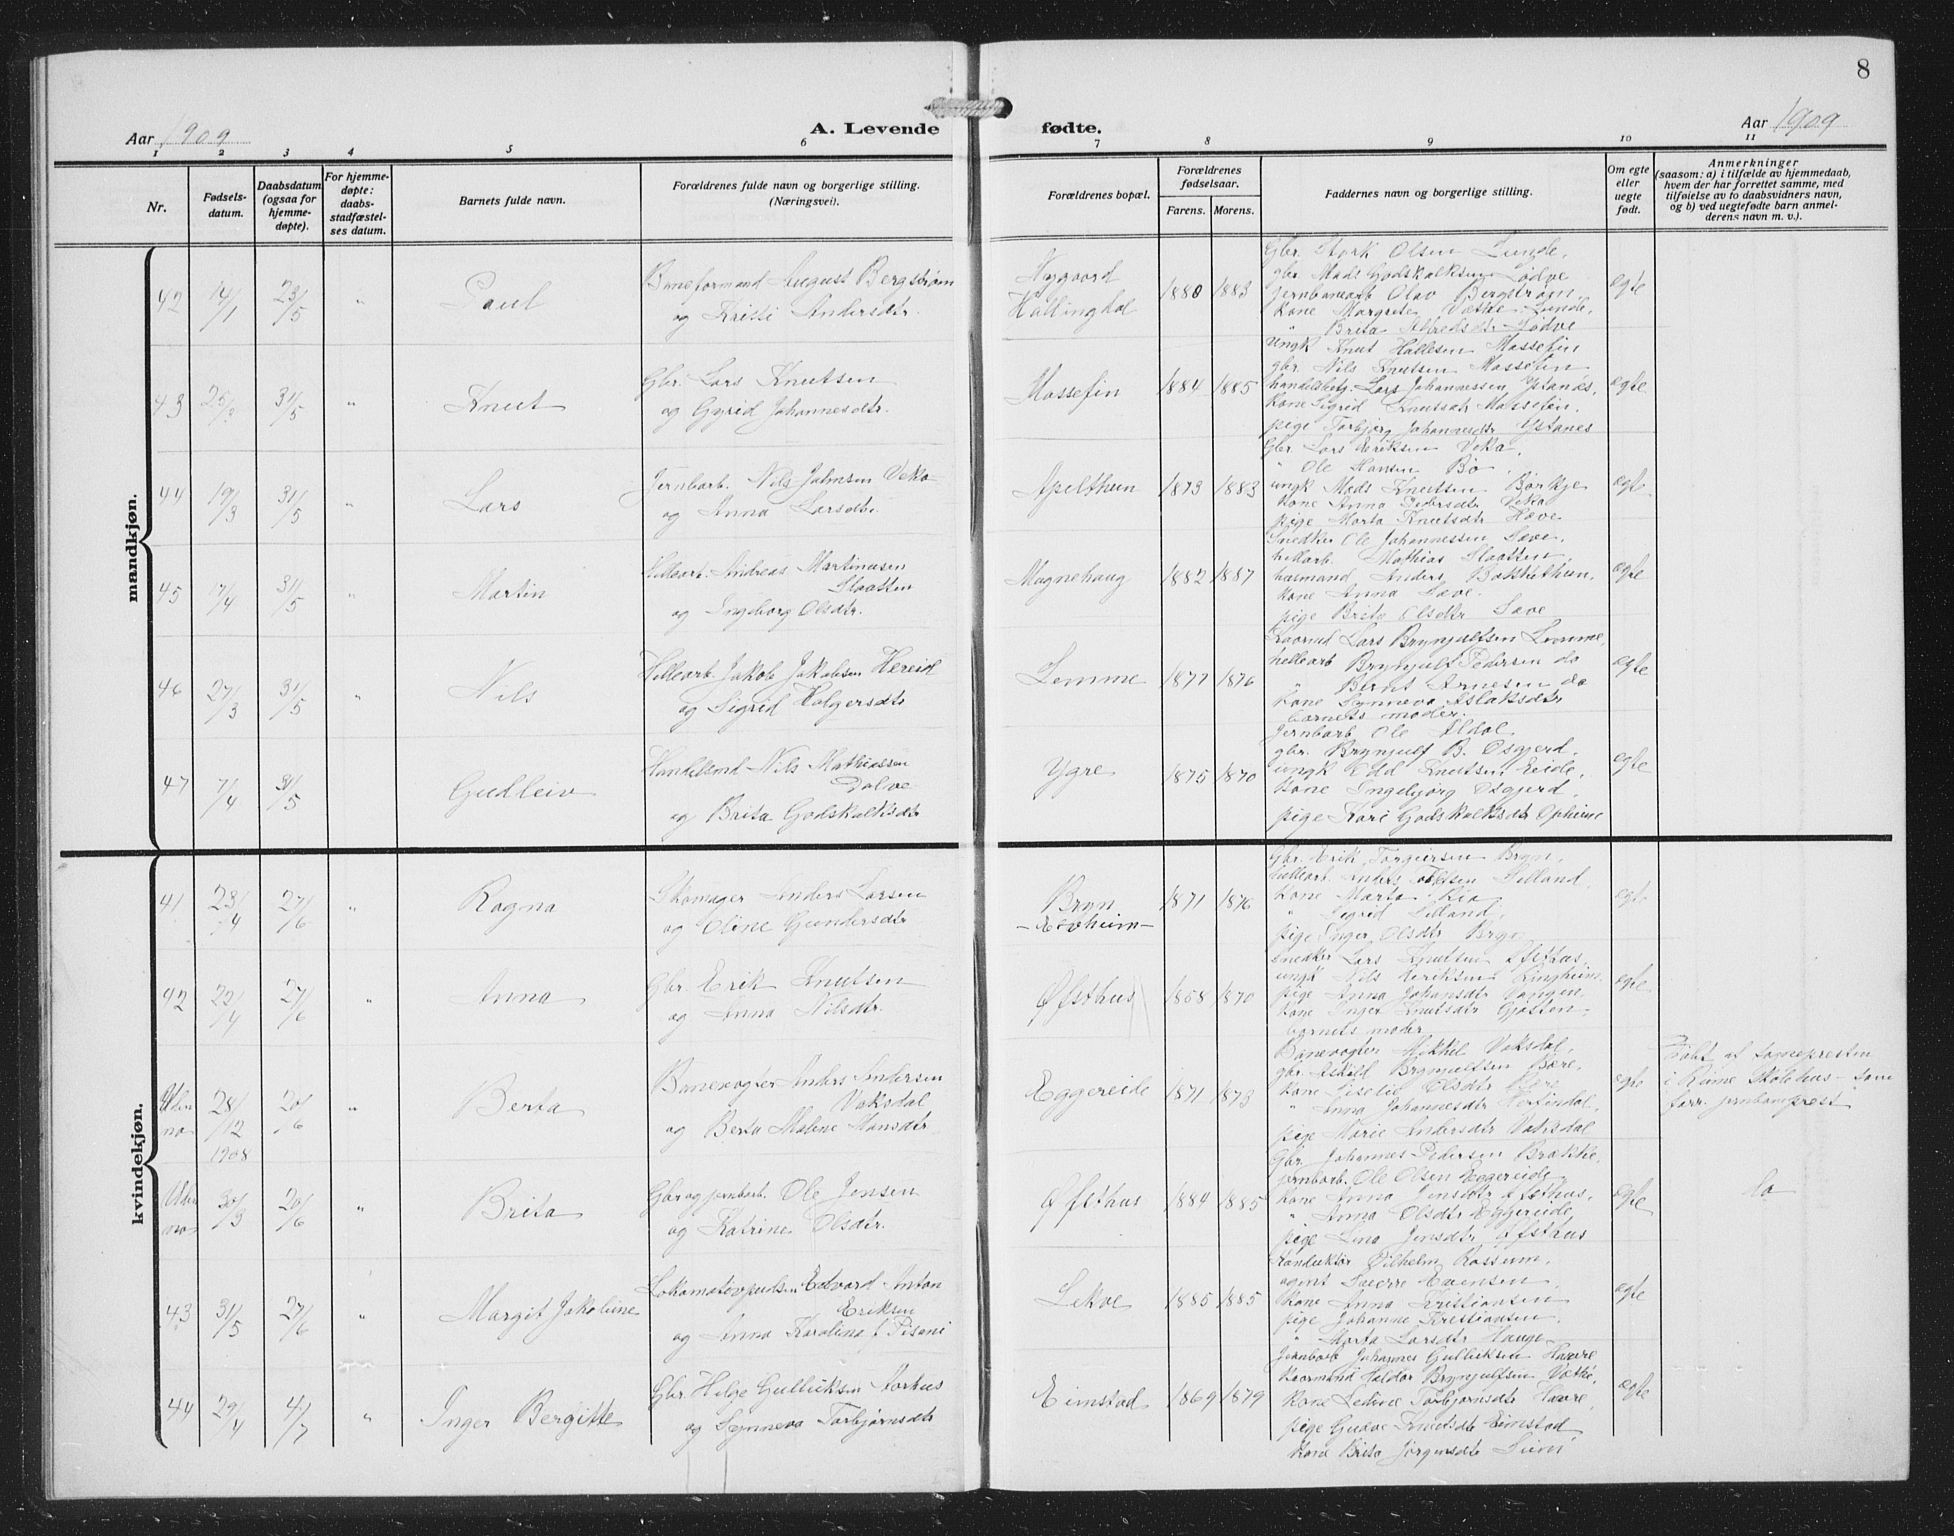 8
Aar 1909
A. Levende fødte.
Aar 1909
1 2 3 4 5 6 7 8 9 10 11
Nr.
Fødselsdatum.
Daabsdatum (ogsaa for hjemmedøpte).
For hjemmedøpte: daabsstadfæstelses datum.
Barnets fulde navn.
Forældrenes fulde navn og borgerlige stilling. (Næringsvei).
Forældrenes bopæl.
Forældrenes fødselsaar.
Farens. Morens.
Faddernes navn og borgerlige stilling.
Om egte eller uegte født.
Anmerkninger
(saasom: a) i tilfælde av hjemmedaab, hvem der har forrettet samme, med tilføielse av to daabsvidners navn, og b) ved uegtefødte barn anmelderens navn m. v.).
mandkjøn.
42 14/1 23/5 " Paul
Baneformand August Bergstrøm
og Kristi Andersdtr.
Nygaard
1880 1883
Gbr. Olsen Lunde,
gbr. Mads Godskalksen Lødve
jernbanearb Olav Bergstrøm,
kone Margrete Lunde,
" Brita Lødve
egte
43 31/5 " Knut
Gbr. Lars Knutsen
og Gyrid Johannesdtr.
Mossefin
1884 1885
ungk Knut Hallesen Mossefin
gbr. Nils Knutsen Mossefin
handelsbetj. Lars Johannessen Ystanes,
kone Sigrid Knutsdtr Mossefin,
pige Torbjørg Johannesdtr Ystanes
egte
44 19/3 31/5 " Lars
Jernbarb. Nils Johnsen Veka
og Anna Larsdtr.
Apelthun
1873 1883
Gbr Lars Eriksen Veka,
" Ole Hansen Bø,
ungk Mads Knutsen Børkje
kone Anna Pedersdtr Veka
pige Marta Knutsdtr Hæve
egte
45 17/4 31/5 " Martin
Hellearb. Andreas Martinusen
Slaatten
og Ingeborg Olsdtr.
Magnehaug
1882 1887
Snedker Ole Johannessen Sæve,
hellarb. Mathias Slaatten,
husmand Anders Bakkethun,
kone Anna Sæve.
pige Brita Olsdtr Sæve
egte
46 27/3 31/5 " Nils
Hellearb. Jakob Jakobsen Hereid
og Sigrid Holgersdtr
Lemme
1877 1876
Kaarmd Lars Brynjulfsen Lemme,
hellearb Brynjulf Pedersen do
" Bernt Arnesen do
kone Synneva Aslaksdtr
barnets moder.
egte
47 7/4 31/5 Gudleiv
Handelsmd Nils Mathiassen
Dolve
og Brita Godskalksdtr
Ygre
1875 1870
Jernbarb Ole Aldal
gbr. Brynjulf B. Osgjerd,
ungk Edd Knutsen Eeide,
kone Ingebjørg Osgjerd,
pige Kari Godskalksdtr Opheim
egte
kvindekjøn.
41 23/4 27/6 " Ragna
Skomager Anders Larsen
og Oline Gundersdtr
Bryn
1871 1876
Gbr. Erik Torgiersen Bryn,
hellearb. Selland,
kone Marta
" Sigrid Selland,
pige Inger Olsdtr Bryn
egte
42 22/4 27/6 " Anna
Gbr. Erik Knutsen
og Anna Nilsdtr.
Øfsthus
1858 1870
Snedker Lars Knutsen Øfsthus,
ungk Nils Eeriksen Ringheim,
pige Anna Johansdtr Vangen,
kone Inger Knutsdtr Gjøsten,
barnets moder
egte
Uten no 28/12 1908 20/6 " Berta
Banevogter Anders Andersen
Vaksdal
og Berta Malene Monsdtr.
Eggereide
1871 1873
Banevogter Mikkel Vaksdal,
gbr. Askild Brynjulfsen Børe,
kone Olsdtr Børe
" Anna Johannesdtr
pige Marie Andersdtr Vaksdal
egte
Døbt af sognepresten
i Rime Skolehus som
forr. jernbaneprest
Uten no 30/3 20/6 " Brita
Gbr og jernbarb. Ole Jensen
og Katrine Olsdtr.
Øfsthus
1884 1885
Gbr. Johannes Pedersen Brakke,
jernbarb. Ole Olsen Eggereide,
kone Anna Jensdtr Øfsthus,
" Anna Olsdtr Eggereide
pige Lina Jensdtr Øfsthus
egte
do
43 31/5 27/6 " Margit Jakobine
Lokomotivpudser Edvard Anton
Eriksen
og Anna Karolina f. Pisani
Lekve
1885 1885
Konduktør Vilhelm Rossum,
agent Sverre Evensen,
kone Anna Kristiansen
pige Johanne Kristiansen,
" Marta Larsdtr Hauge
egte
44 29/4 4/7 " Inger Bergitte
Gbr Helge Gulliksen Aarhus
og Synneva Torbjørnsdtr
Eimstad
1869 1879
Jernbarb Johannes Gulliksen Haavre
Kaarmand Haldor Brynjulfsen Væthe,
kone Ledvine Torbjørnsdtr Haavre,
pige Gudve Knutsdtr Eimstad
kone Brita Jørgensdtr
egte